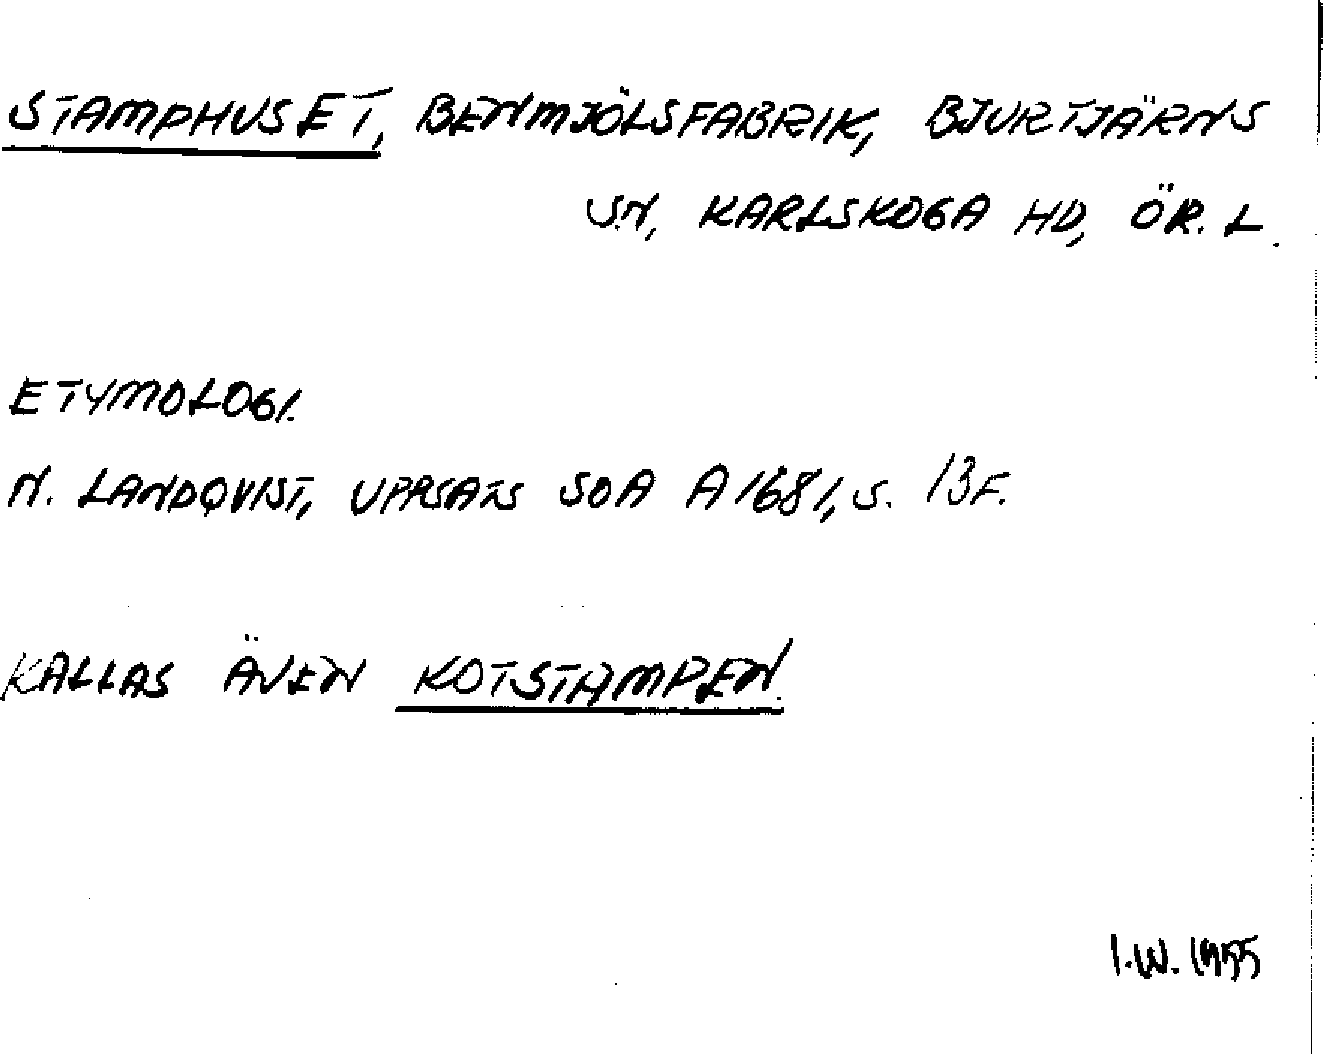 STAMPHUSET, BENMJÖLSFABRIK, BJURTJÄRNS
SN, KARLSKOGA HD, ÖR. L.
ETYMOLOGI.
N. LANDQVIST, UPPSATS SOA A 1681, S. 13 F.
KALLAS ÄVEN KOTSTAMPEN.
I.W. 1955